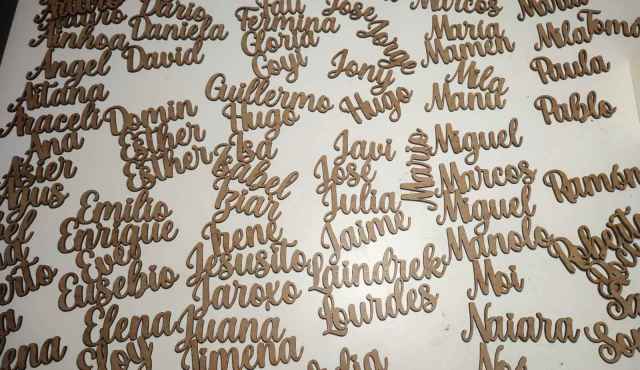 Dario
Daniela
David
Ainhoa
Angel
Aitana
Araceli
Ana
Asier
Domin
Esther
Esther
Emilio
Enrique
Eva
Eusebio
Elena
Eloy
Fermina
Gloria
Goyi
Guillermo
Hugo
Isa
Isabel
Iziar
Irene
Jesusito
Jaroxo
Juana
Jimena
Jose
Jorge
Jony
Hugo
Javi
Jose
Julia
Jaime
Laindrek
Lourdes
Marcos
María
Mamen
Mila
Manu
Mario
Miguel
Marcos
Miguel
Manolo
Moi
Naiara
Mila
Paula
Pablo
Ramón